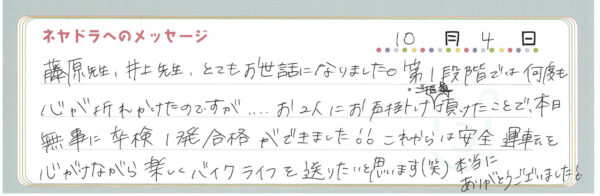 ネヤドラへのメッセージ
10月4日
藤原先生、井上先生、とてもお世話になりました。第1段階では何度も
心が折れかけたのですが....お2人にお声掛け・ご指導頂けたことで、本日
無事に卒検1発合格ができました!! これからは安全運転を
心がけながら楽しくバイクライフを送りたいと思います(笑)本当に
ありがとうございました!